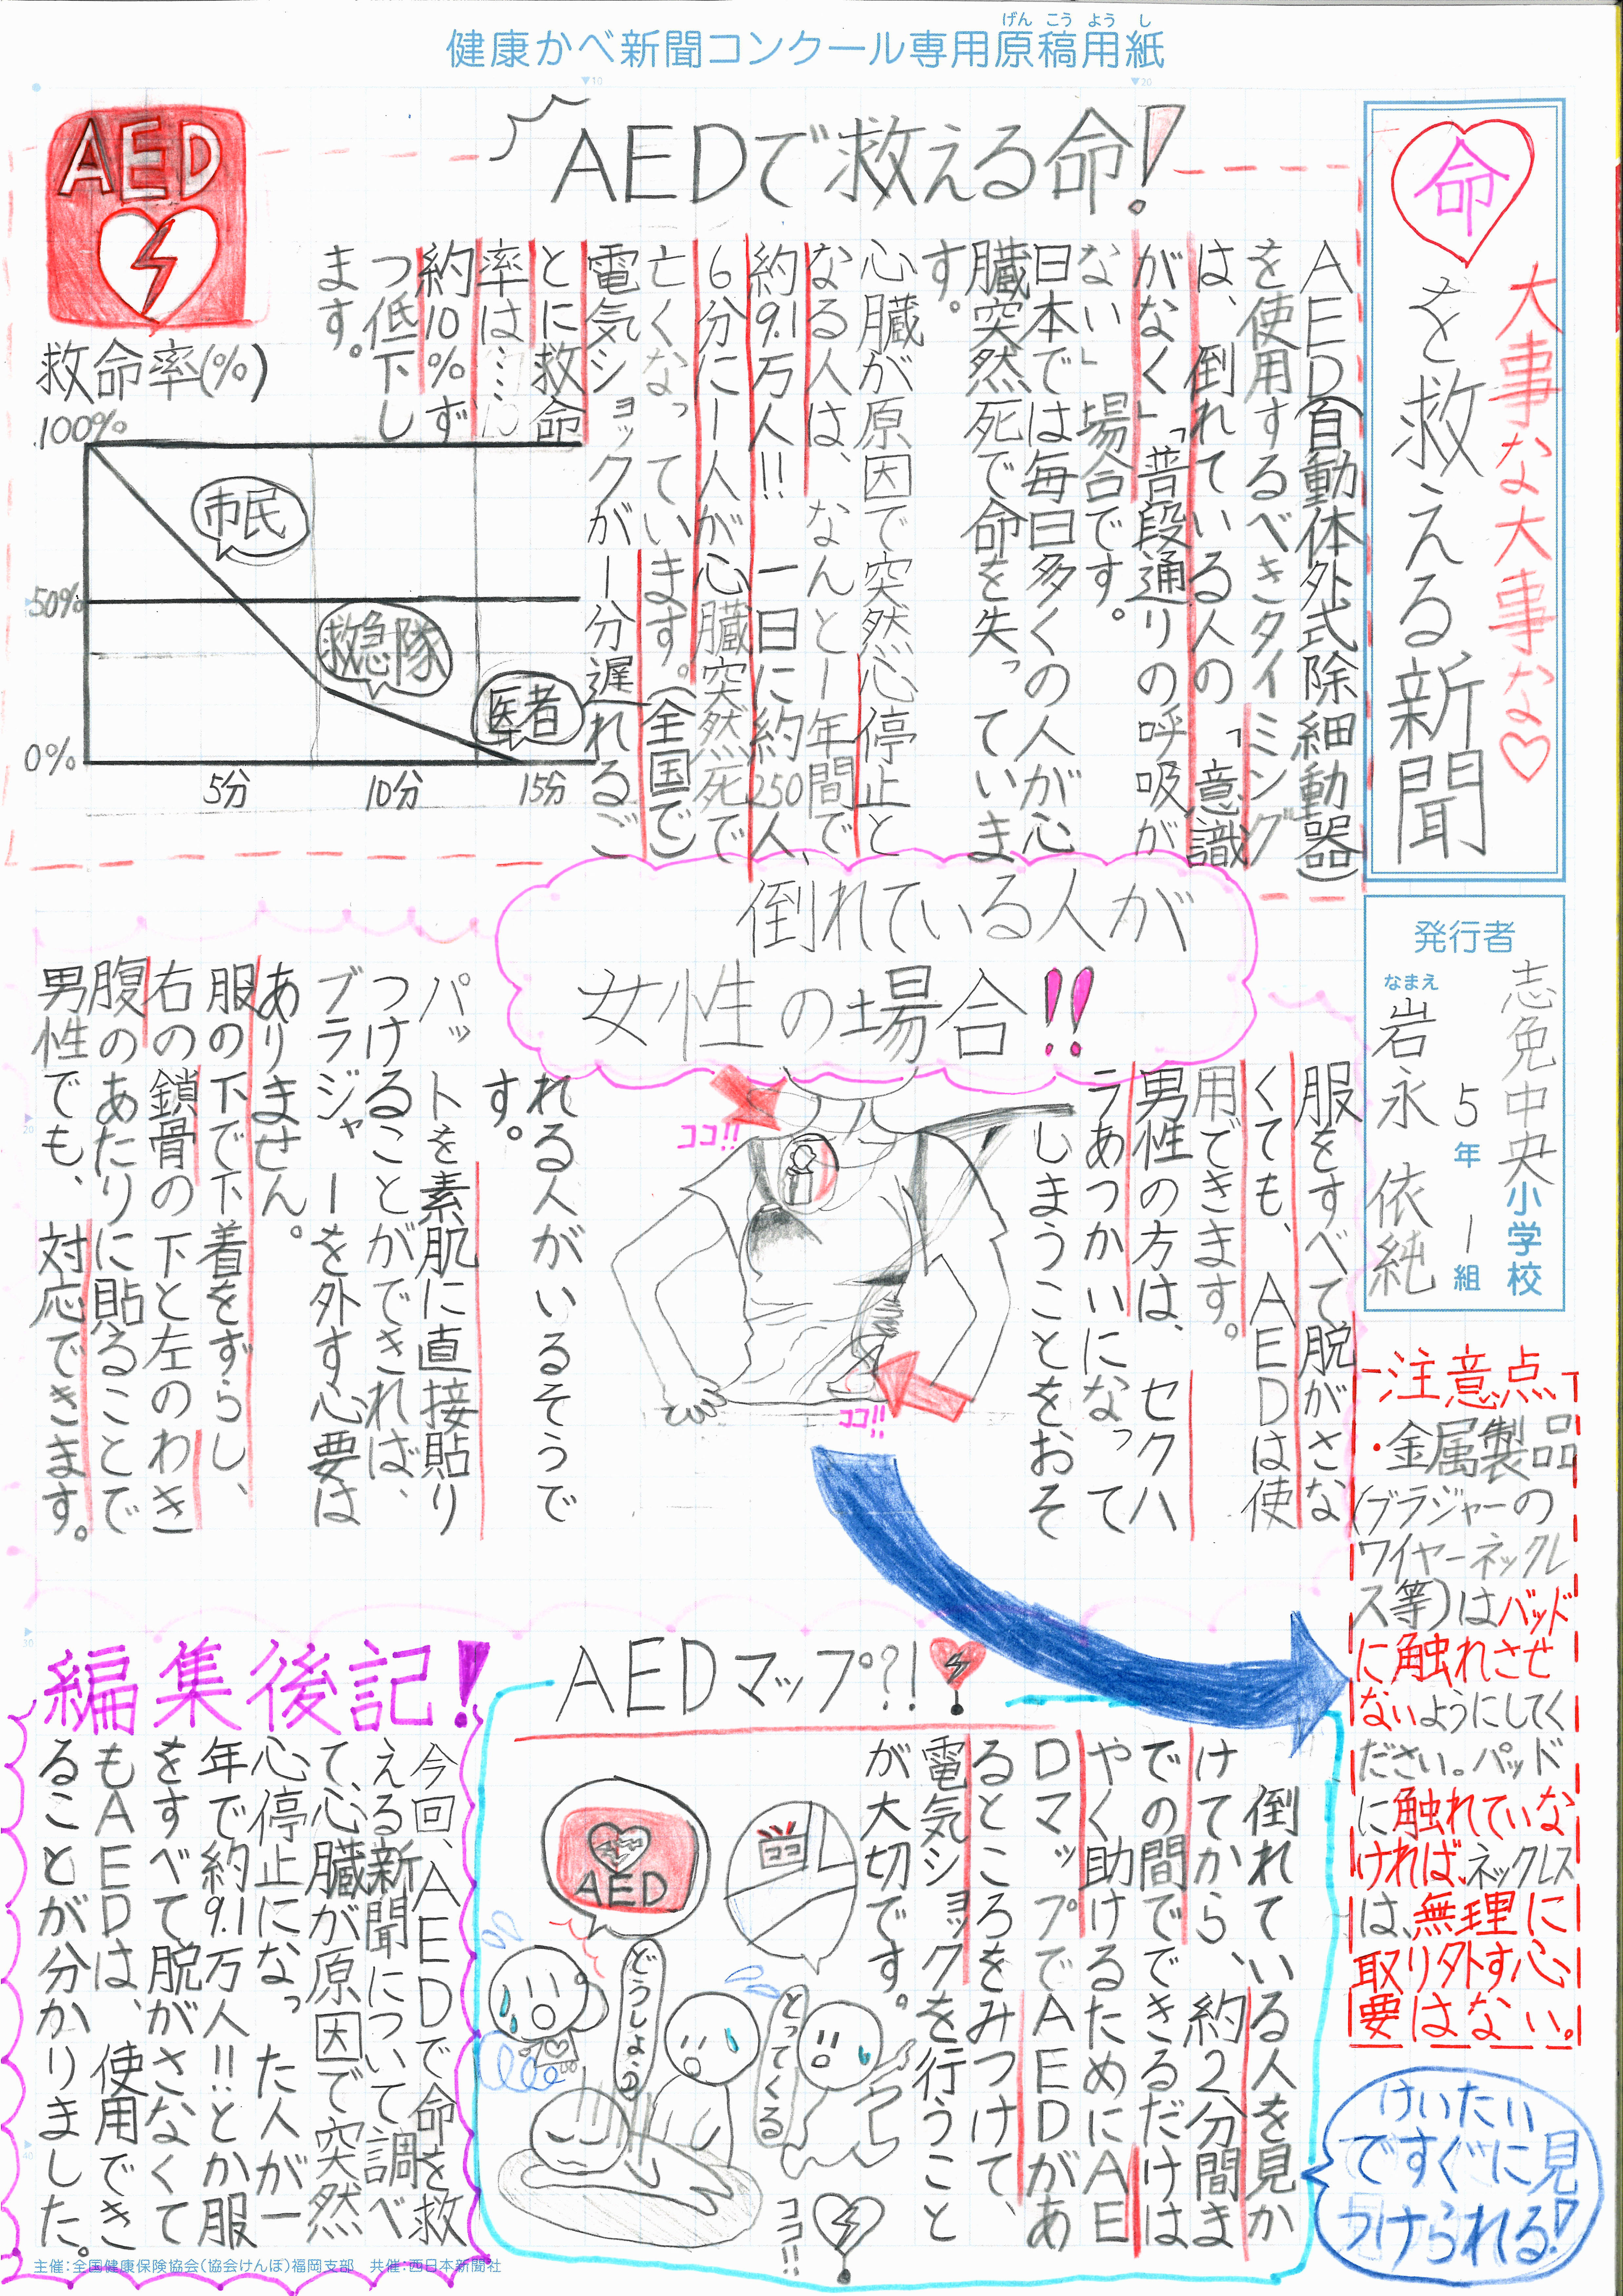 健康かべ新聞コンクール専用原稿用紙
げんこうようし
大事な大事な♡
命を救える新聞
発行者
志免中央小学校
5年1組
なまえ
岩永依純
AEDで救える命!
AED(自動体外式除細動器)
を使用するべきタイミング
は、倒れている人の「意識
がなく」「普段通りの呼吸が
ない」場合です。
日本では毎日多くの人が心
臓突然死で命を失っていま
す。
心臓が原因で突然心停止と
なる人は、なんと一年間で
約9.1万人!!一日に約250人、
6分に一人が心臓突然死で
亡くなっています。(全国で)
電気ショックが一分遅れるご
とに救命
率は…
約10%ず
つ低下し
ます。
AED
救命率(%)
100%
50%
0%
5分
10分
15分
市民
救急隊
医者
倒れている人が
女性の場合!!
服をすべて脱がさな
くても、AEDは使
用できます。
男性の方は、セクハ
ラあつかいになって
しまうことをおそ
れる人がいるそうで
す。
パットを素肌に直接貼り
つけることができれば、
ブラジャーを外す必要は
ありません。
服の下で下着をずらし、
右の鎖骨の下と左のわき
腹のあたりに貼ることで
男性でも、対応できます。
ココ!!
ココ!!
注意点
・金属製品
(ブラジャーの
ワイヤーネックレ
ス等)はパッド
に触れさせ
ないようにしてく
ださい。パッド
に触れていな
ければ、ネックレス
は、無理に
取り外す必
要はない。
けいたい
ですぐに見
つけられる!
AEDマップ?!
倒れている人を見か
けてから、約2分間ま
での間でできるだけは
やく助けるためにAE
DマップでAEDがあ
るところをみつけて、
電気ショックを行うこと
が大切です。
AED
ココ
どうしよう
とってくる
ココ!!
編集後記!
今回、AEDで命を救
える新聞について調べ
て、心臓が原因で突然
心停止になった人が一
年で約9.1万人!!とか服
をすべて脱がさなくて
もAEDは、使用でき
ることが分かりました。
主催:全国健康保険協会(協会けんぽ)福岡支部 共催:西日本新聞社